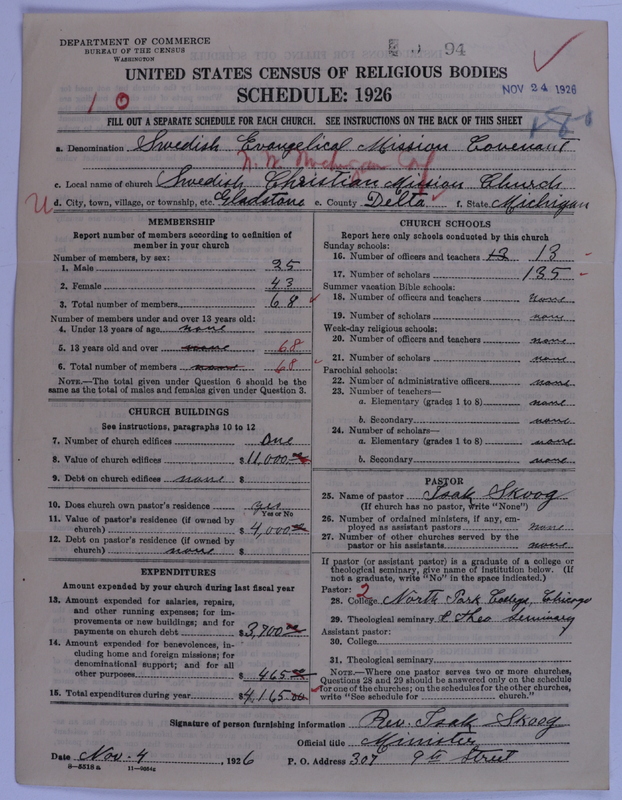 DEPARTMENT OF COMMERCE
BUREAU OF THE CENSUS
WASHINGTON
94
UNITED STATES CENSUS OF RELIGIOUS BODIES
SCHEDULE: 1926
NOV 24 1926
10
FILL OUT A SEPARATE SCHEDULE FOR EACH CHURCH. SEE INSTRUCTIONS ON THE BACK OF THIS SHEET
a. Denomination Swedish Evangelical Mission Covenant
N. W. Michigan Conf
c. Local name of church Swedish Christian Mission Church
d. City, town, village, or township, etc. Gladstone e. County Delta f. State Michigan
MEMBERSHIP
Report number of members according to definition of member in your church
Number of members, by sex:
1. Male 25
2. Female 43
3. Total number of members 68
Number of members under and over 13 years old:
4. Under 13 years of age none
5. 13 years old and over none 68
6. Total number of members none 68
NOTE.—The total given under Question 6 should be the same as the total of males and females given under Question 3.
CHURCH BUILDINGS
See instructions, paragraphs 10 to 12
7. Number of church edifices One
8. Value of church edifices $11,000.00
9. Debt on church edifices none $
10. Does church own pastor's residence yes
Yes or No
11. Value of pastor's residence (if owned by church) $4,000.00
12. Debt on pastor's residence (if owned by church) none $
EXPENDITURES
Amount expended by your church during last fiscal year
13. Amount expended for salaries, repairs, and other running expenses; for improvements or new buildings; and for payments on church debt $3,700.00
14. Amount expended for benevolences, including home and foreign missions; for denominational support; and for all other purposes $465.00
15. Total expenditures during year $4,165.00
CHURCH SCHOOLS
Report here only schools conducted by this church
Sunday schools:
16. Number of officers and teachers 13 13
17. Number of scholars 135
Summer vacation Bible schools:
18. Number of officers and teachers none
19. Number of scholars none
Week-day religious schools:
20. Number of officers and teachers none
21. Number of scholars none
Parochial schools:
22. Number of administrative officers none
23. Number of teachers—
a. Elementary (grades 1 to 8) none
b. Secondary none
24. Number of scholars—
a. Elementary (grades 1 to 8) none
b. Secondary none
PASTOR
25. Name of pastor Isak Skoog
(If church has no pastor, write "None")
26. Number of ordained ministers, if any, employed as assistant pastors none
27. Number of other churches served by the pastor or his assistants none
If pastor (or assistant pastor) is a graduate of a college or theological seminary, give name of institution below. (If not a graduate, write "No" in the space indicated.)
Pastor: 2
28. College North Park College, Chicago
29. Theological seminary " Theo Seminary
Assistant pastor:
30. College
31. Theological seminary
NOTE.—Where one pastor serves two or more churches, Questions 28 and 29 should be answered only on the schedule for one of the churches; on the schedules for the other churches, write "See schedule for church."
Signature of person furnishing information Rev. Isak Skoog
Official title Minister
Date Nov. 4, 1926 P. O. Address 307 9th Street
8—5518 a 11—9064a